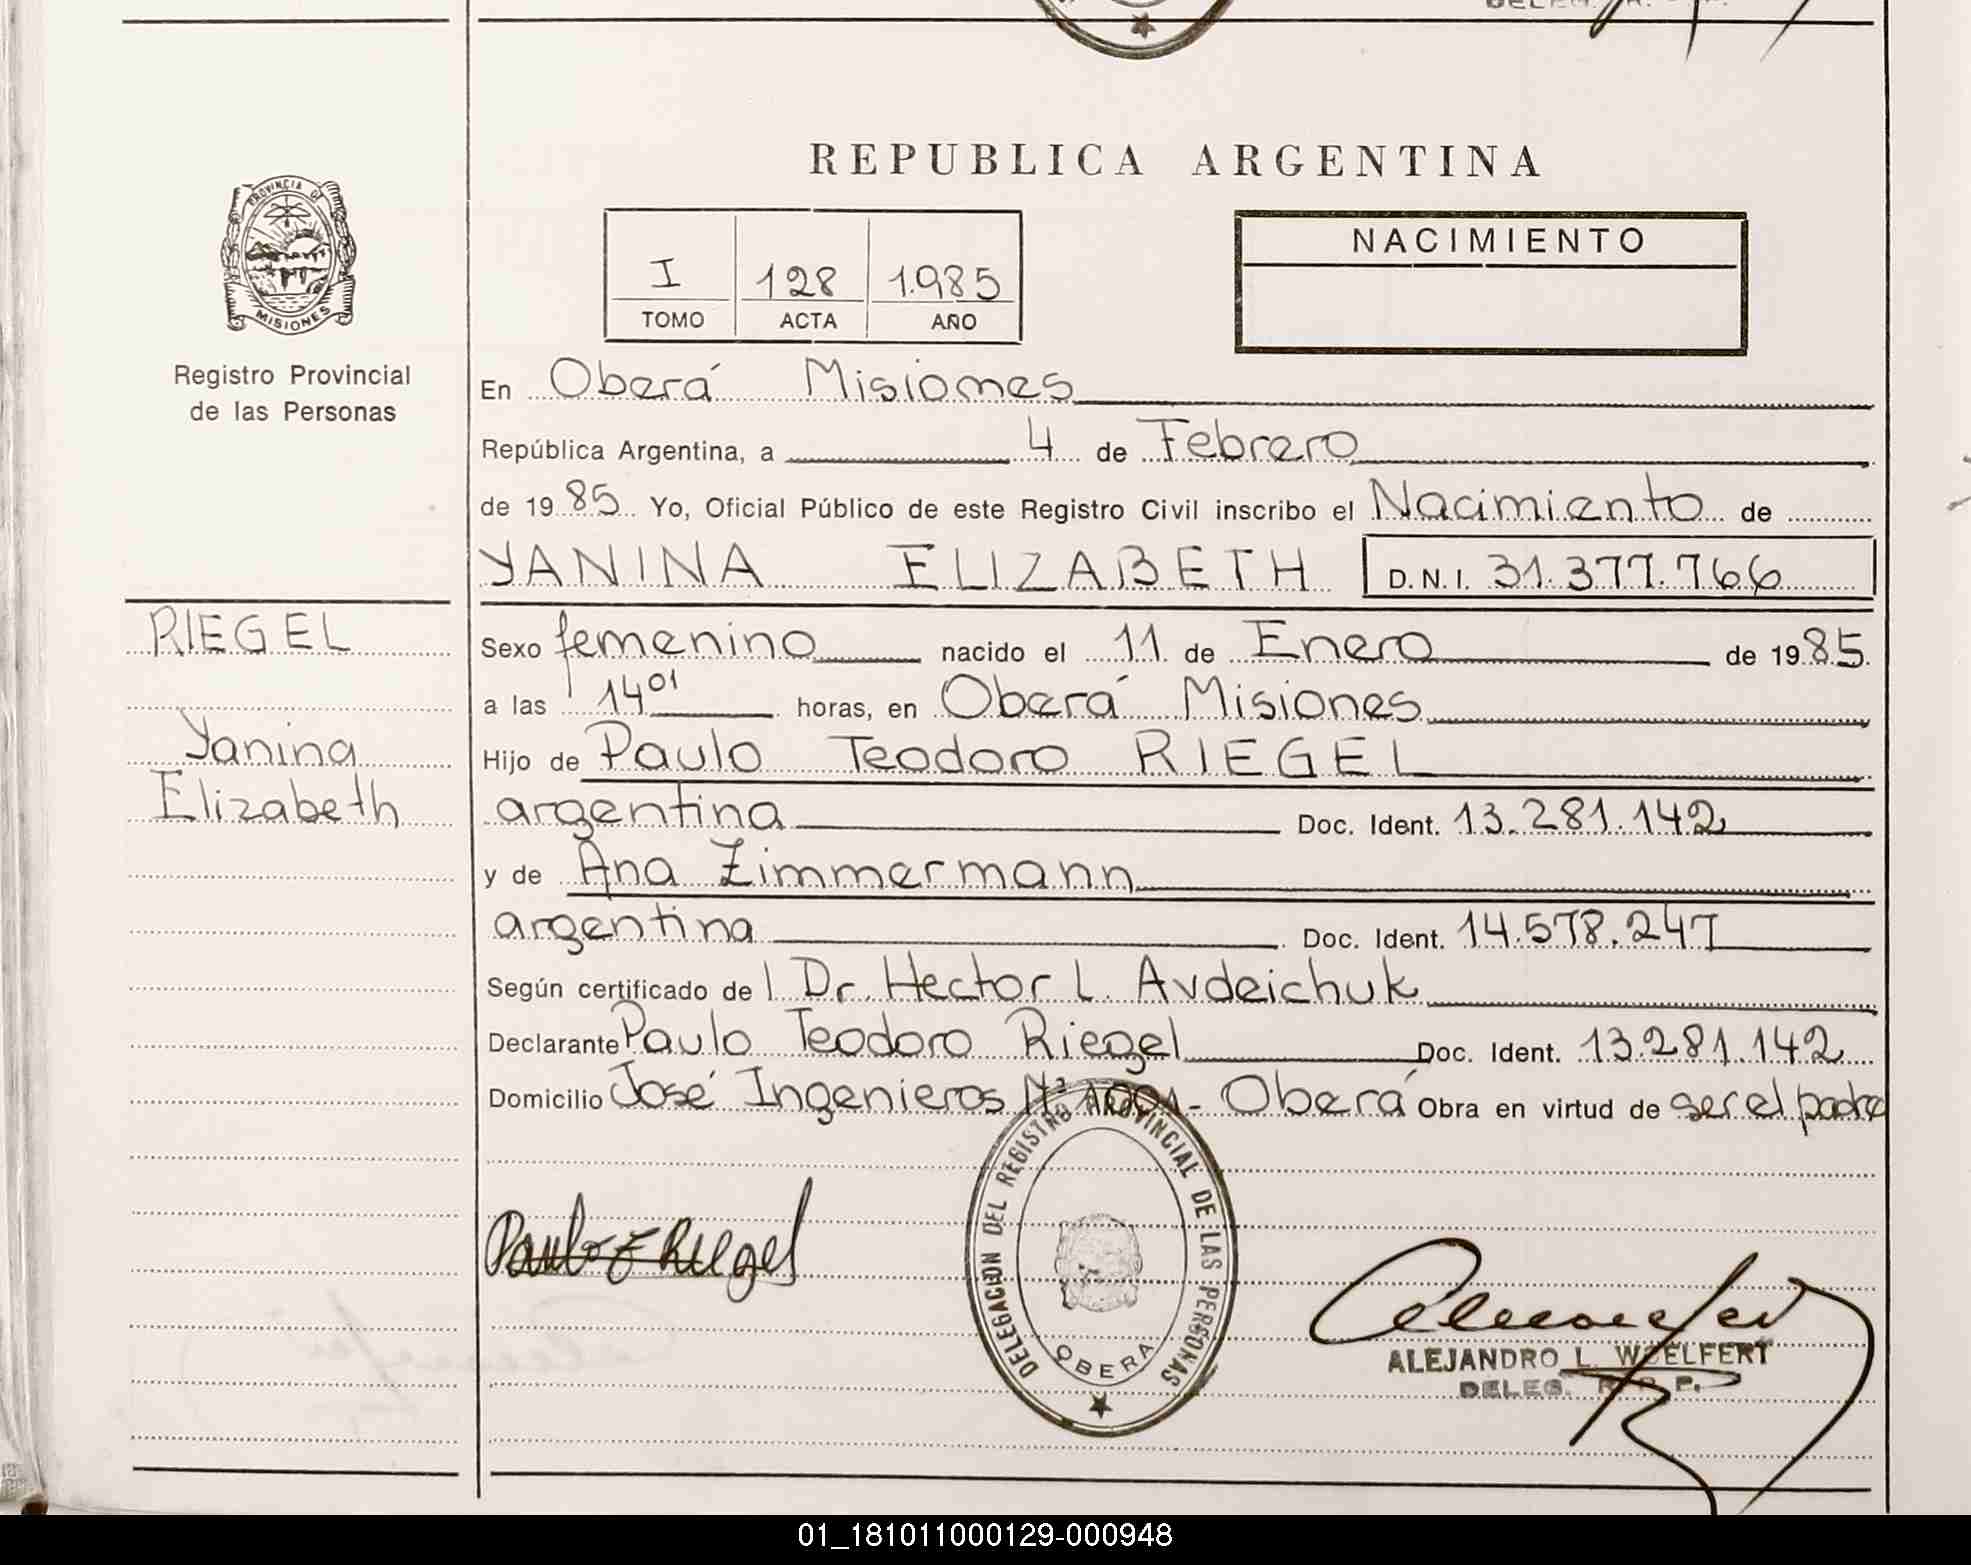 REPUBLICA ARGENTINA
PROVINCIA DE
MISIONES
Registro Provincial
de las Personas
I 128 1.985
TOMO ACTA AÑO
NACIMIENTO
En Oberá Misiones
República Argentina, a 4 de Febrero
de 1985 Yo, Oficial Público de este Registro Civil inscribo el Nacimiento de
YANINA ELIZABETH D.N.I. 31.377.766
RIEGEL
Yanina
Elizabeth
Sexo femenino nacido el 11 de Enero de 1985.
a las 14 01 horas, en Oberá Misiones
Hijo de Paulo Teodoro RIEGEL
argentina Doc. Ident. 13.281.142
y de Ana Zimmermann
argentina Doc. Ident. 14.578.247
Según certificado de l Dr. Hector L. Avdeichuk
Declarante Paulo Teodoro Riegel Doc. Ident. 13.281.142
Domicilio José Ingenieros Nº 1001- Oberá Obra en virtud de ser el padre
Paulo T Riegel
DELEGACION DEL REGISTRO PROVINCIAL DE LAS PERSONAS
OBERA
ALEJANDRO L. WOELFERT
DELEG. R. P. P.
01_181011000129-000948